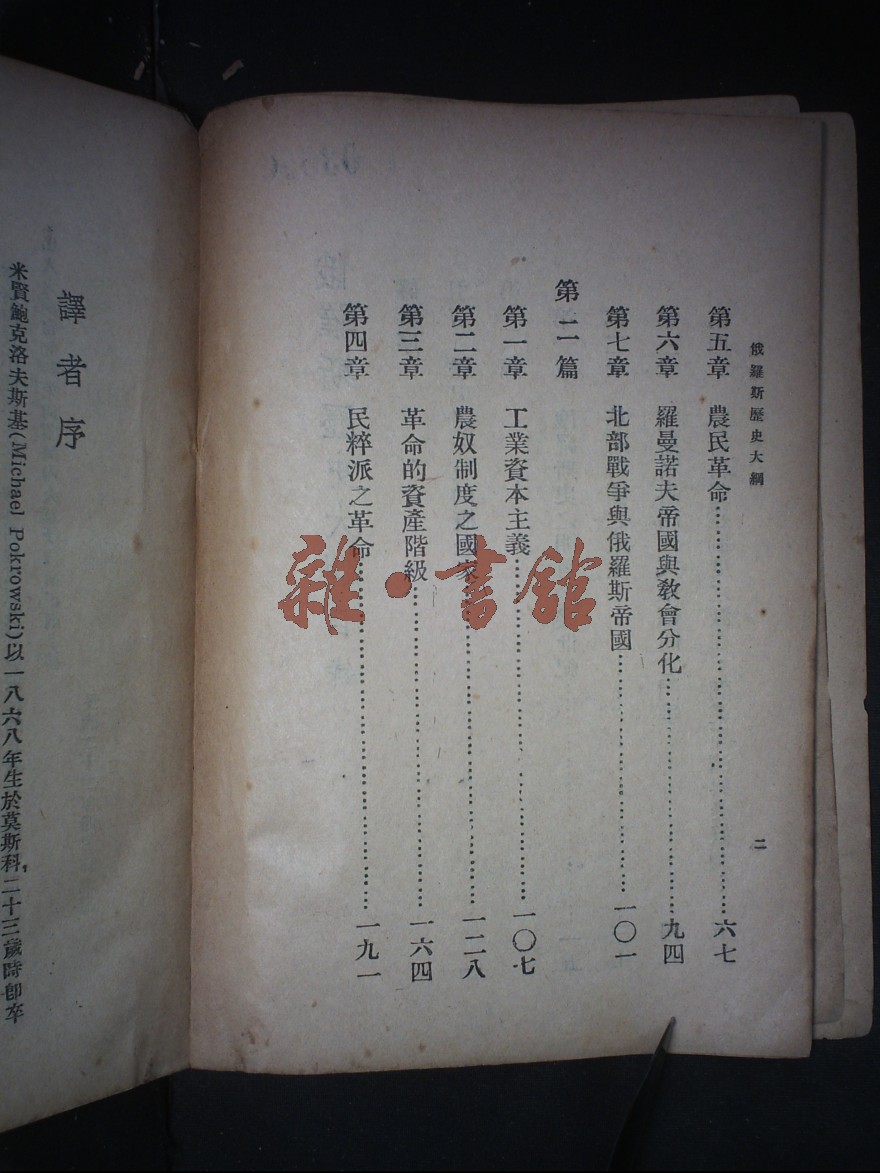 俄羅斯歷史大綱
二
第五章 農民革命……六七
第六章 羅曼諾夫帝國與敎會分化……九四
第七章 北部戰爭與俄羅斯帝國……一〇一
第二篇
第一章 工業資本主義……一〇七
第二章 農奴制度之國家……一二八
第三章 革命的資產階級……一六四
第四章 民粹派之革命……一九一
譯者序
米賢鮑克洛夫斯基(Michael Pokrowski)以一八六八年生於莫斯科,二十三歲時卽卒
雜·書館